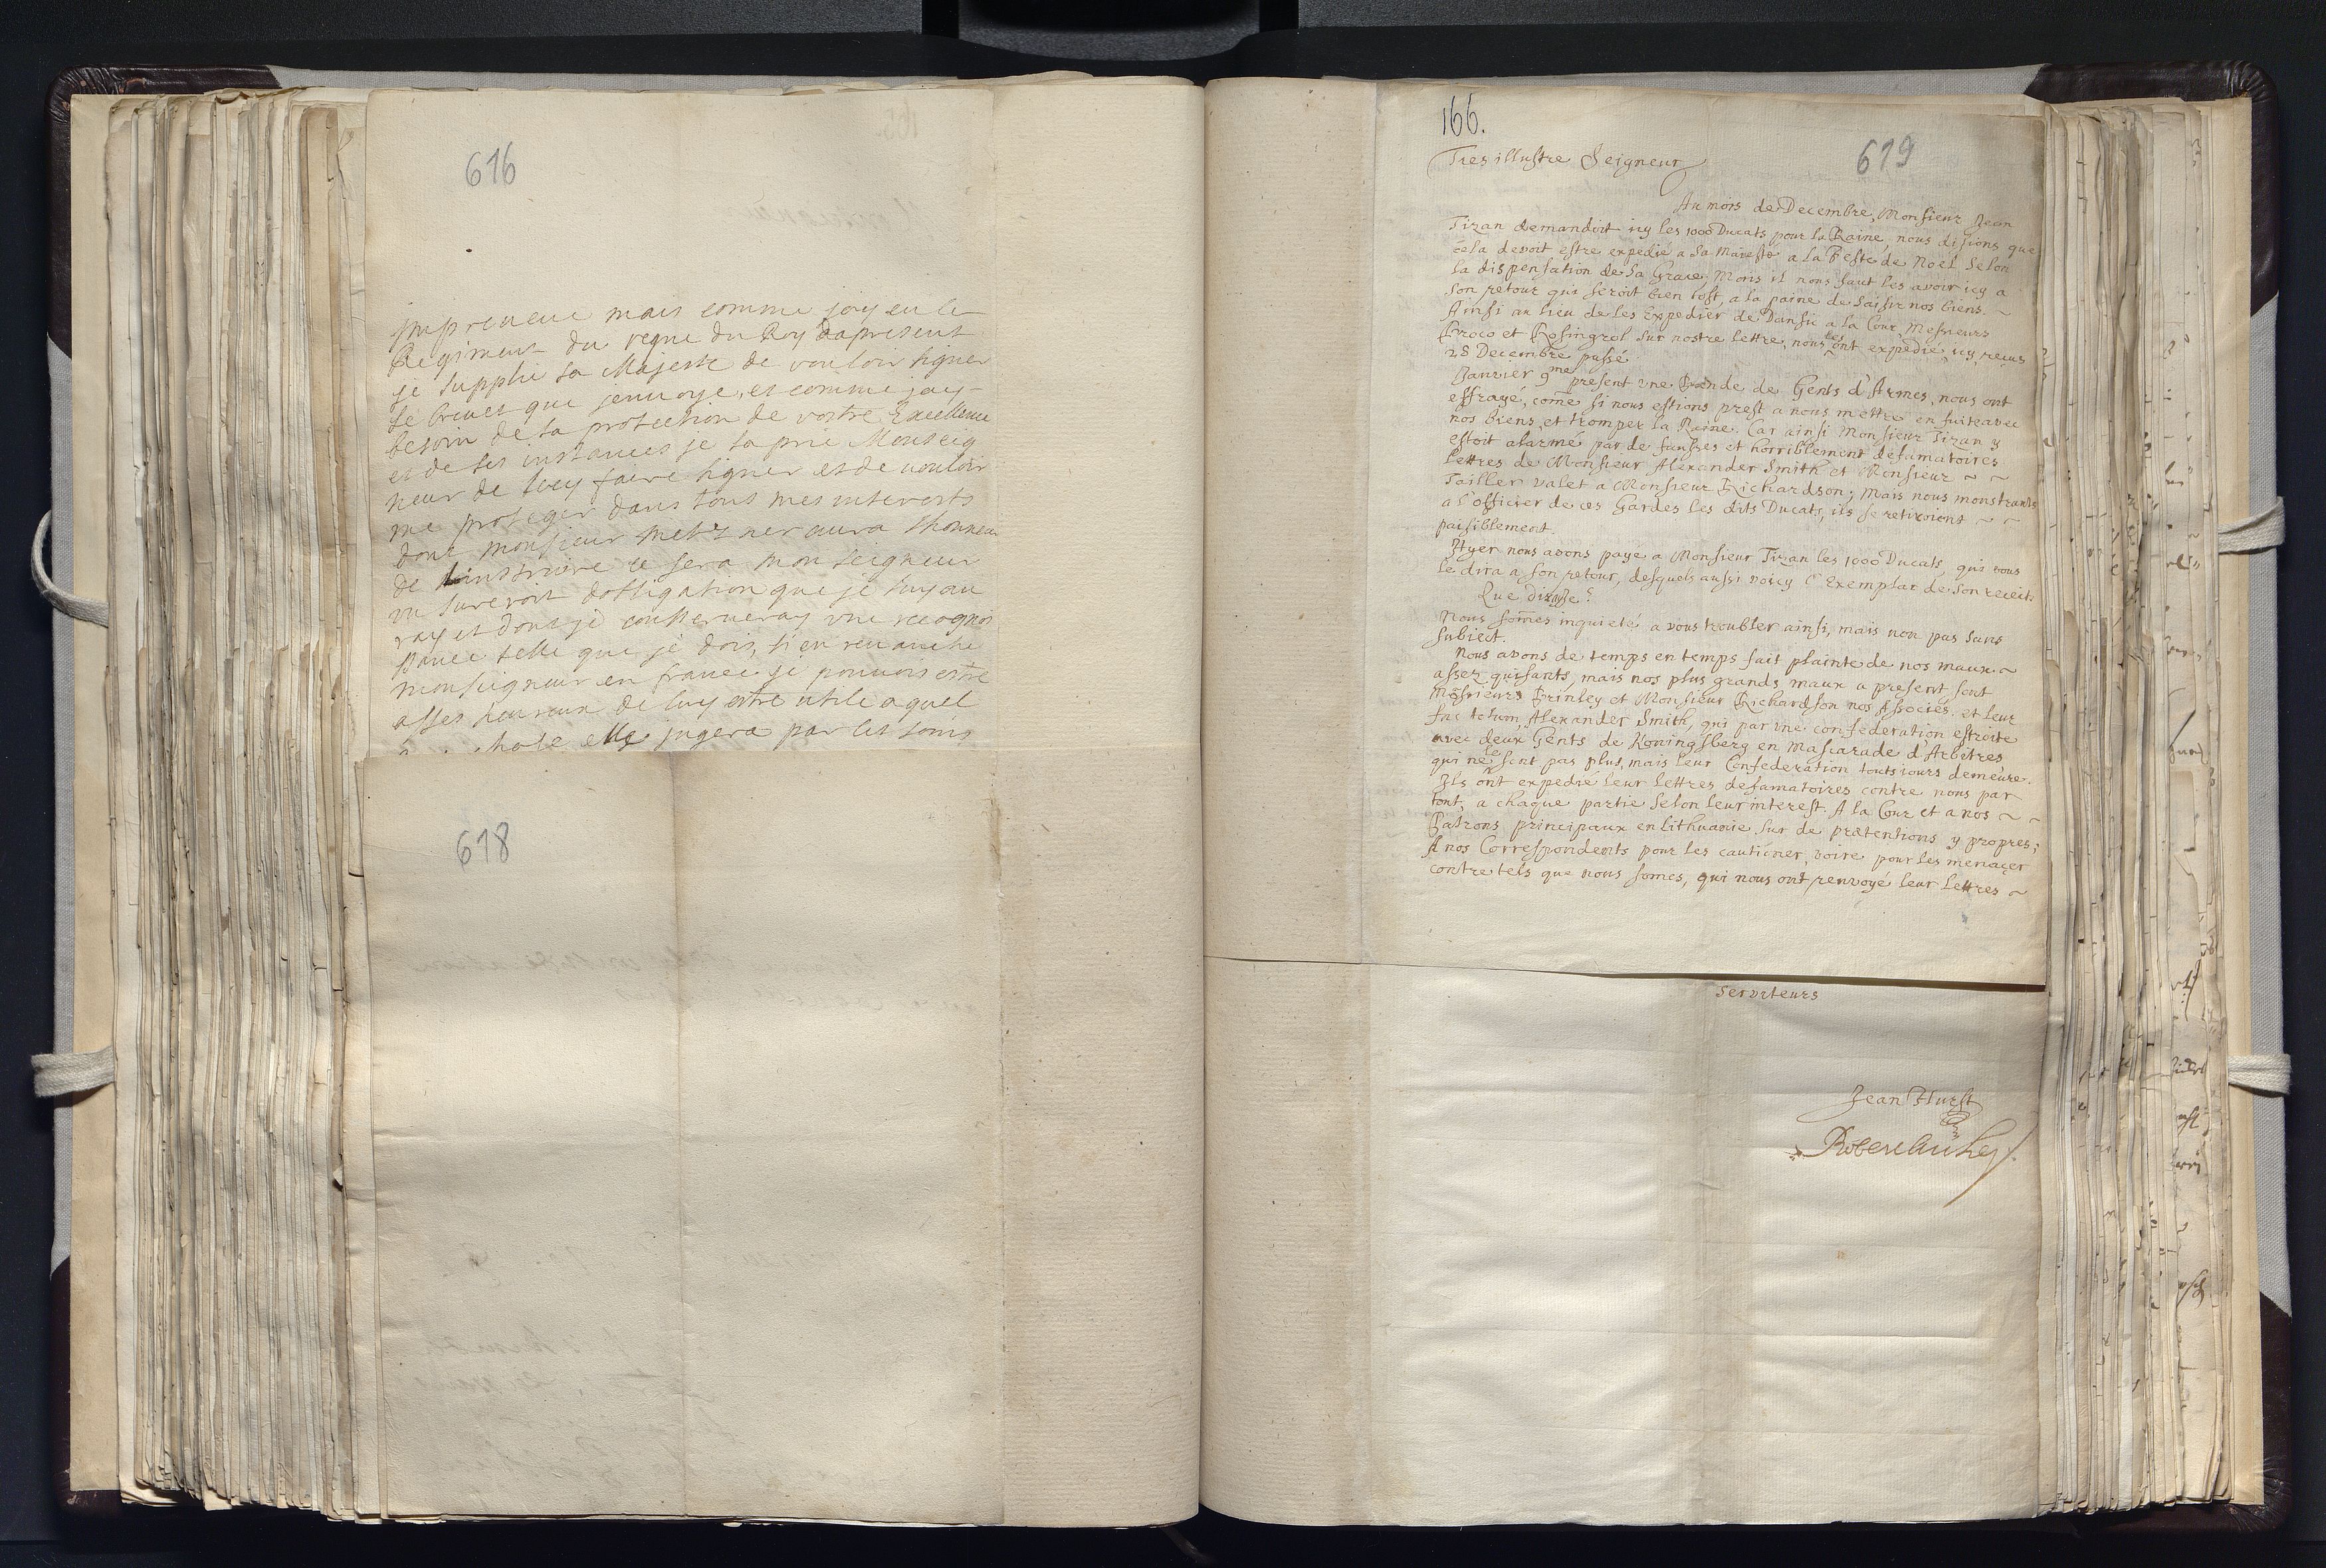 616
mais comme jay eu le
Regiment du regne du Roy dapresent
je supplie sa Majeste de vouloir signer
le brevet que jenvoye, et comme jay
besoin de sa protection de vostre Excellence
et de ses instances je la prie Monseig
neur de luy faire signer et de vouloir
me proteger dans tous mes interests
dont monsieur metzner aura lhonneur
de linstruire ce sera mon seigneur
un surcroit dobligation que je luy au
ray et dont je conserveray une recognoi
ssance telle que je dois, si en revanche
monseigneur en france je pouvois estre
asses heureux de luy estre utile a quel
chose elle jugera par les soins
618
166.
619
Tres illustre Seigneur
Au mois de Decembre, Monsieur Jean
Tizan demandoit icy les 1000 Ducats pour la Raine, nous disions que
cela devoit estre expedié a Sa Maiesté a la Feste de Noel selon
la dispensation de Sa Grace, Mais il nous faut les avoir icy a
son retour qui seroit bien tost, a la paine de saisir nos biens. ~
Ainsi au lieu de les Expedier de Danzic a la Cour, Messieurs
Broco et Rosingrol sur nostre lettre, nous les ont expedié icy receus
28 Decembre passé.
Janvier 9me present une Bande de Gents d'Armes, nous ont
effrayé, come si nous estions prest a nous mettre en fuite avec
nos biens, et tromper la Raine. Car ainsi Monsieur Tizan y
estoit alarmé par de fausses et horriblement defamatoires
lettres de Monsieur Alexander Smith et Monsieur ~ ~
Tailler valet a Monsieur Richardson; mais nous monstrants
a l'officier de ces Gardes les dits Ducats, ils se retiroient ~ ~
paisiblement.
Hyer nous avons payé a Monsieur Tizan les 1000 Ducats, qui vous
le dira a son retour, desquels aussi voicy l'Exemplar de son receit.
Que diraje?
Nous somes inquietés a vous troubler ainsi, mais non pas sans
subiect.
Nous avons de temps en temps fait plainte de nos maux ~
assez quisants, mais nos plus grands maux a present sont
Messrieurs Brinley et Monsieur Richardson nos Associés. et leur
fac totum Alexander Smith, qui par une confederation estroite
avec deux Gents de Koningsberg en Mascarade d'Arbitres
qui ne le sont pas plus, mais leur Confederation touts iours demeure.
Ils ont expedié leur lettres defamatoires contre nous par
tout, a chaque partie selon leur interest. A la Cour et a nos ~ ~
Patrons principaux en Lithuanie sur de prætentions y propres;
A nos Correspondents pour les cautioner, voire pour les menacer
contre tels que nous somes, qui nous ont renvoyé leur lettres ~
Serviteurs
Jean Hurst